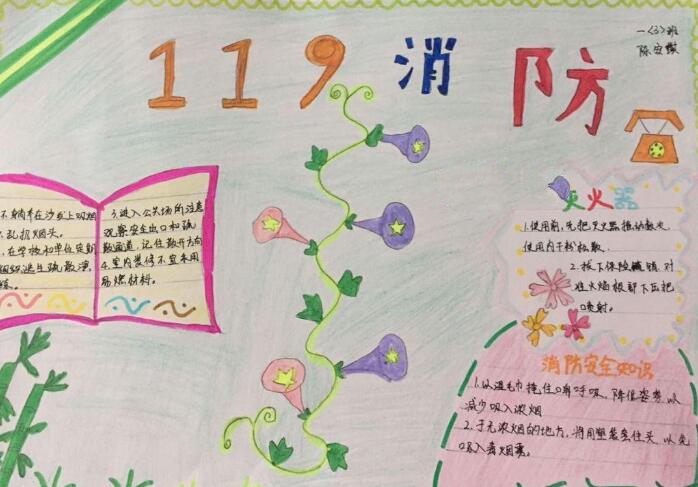 119消防
一(3)班
陈安
不躺卧在沙发上吸烟
乱扔烟头。
在学校和单位定期
组织逃生疏散演
练。
3.进入公共场所注意
观察安全出口和疏
散通道,记住散开方向
4.室内装修不宜采用
易燃材料。
灭火器
1.使用前,先把灭火器摇动数次
使用内干粉松散。
2.拔下保险销,对
准火焰根部下压把
喷射。
消防安全知识
1.以湿毛巾掩住口鼻呼吸,降低姿势,以
减少吸入浓烟
2.于无浓烟的地方,将用塑袋套住头,以免
吸入毒烟雾。